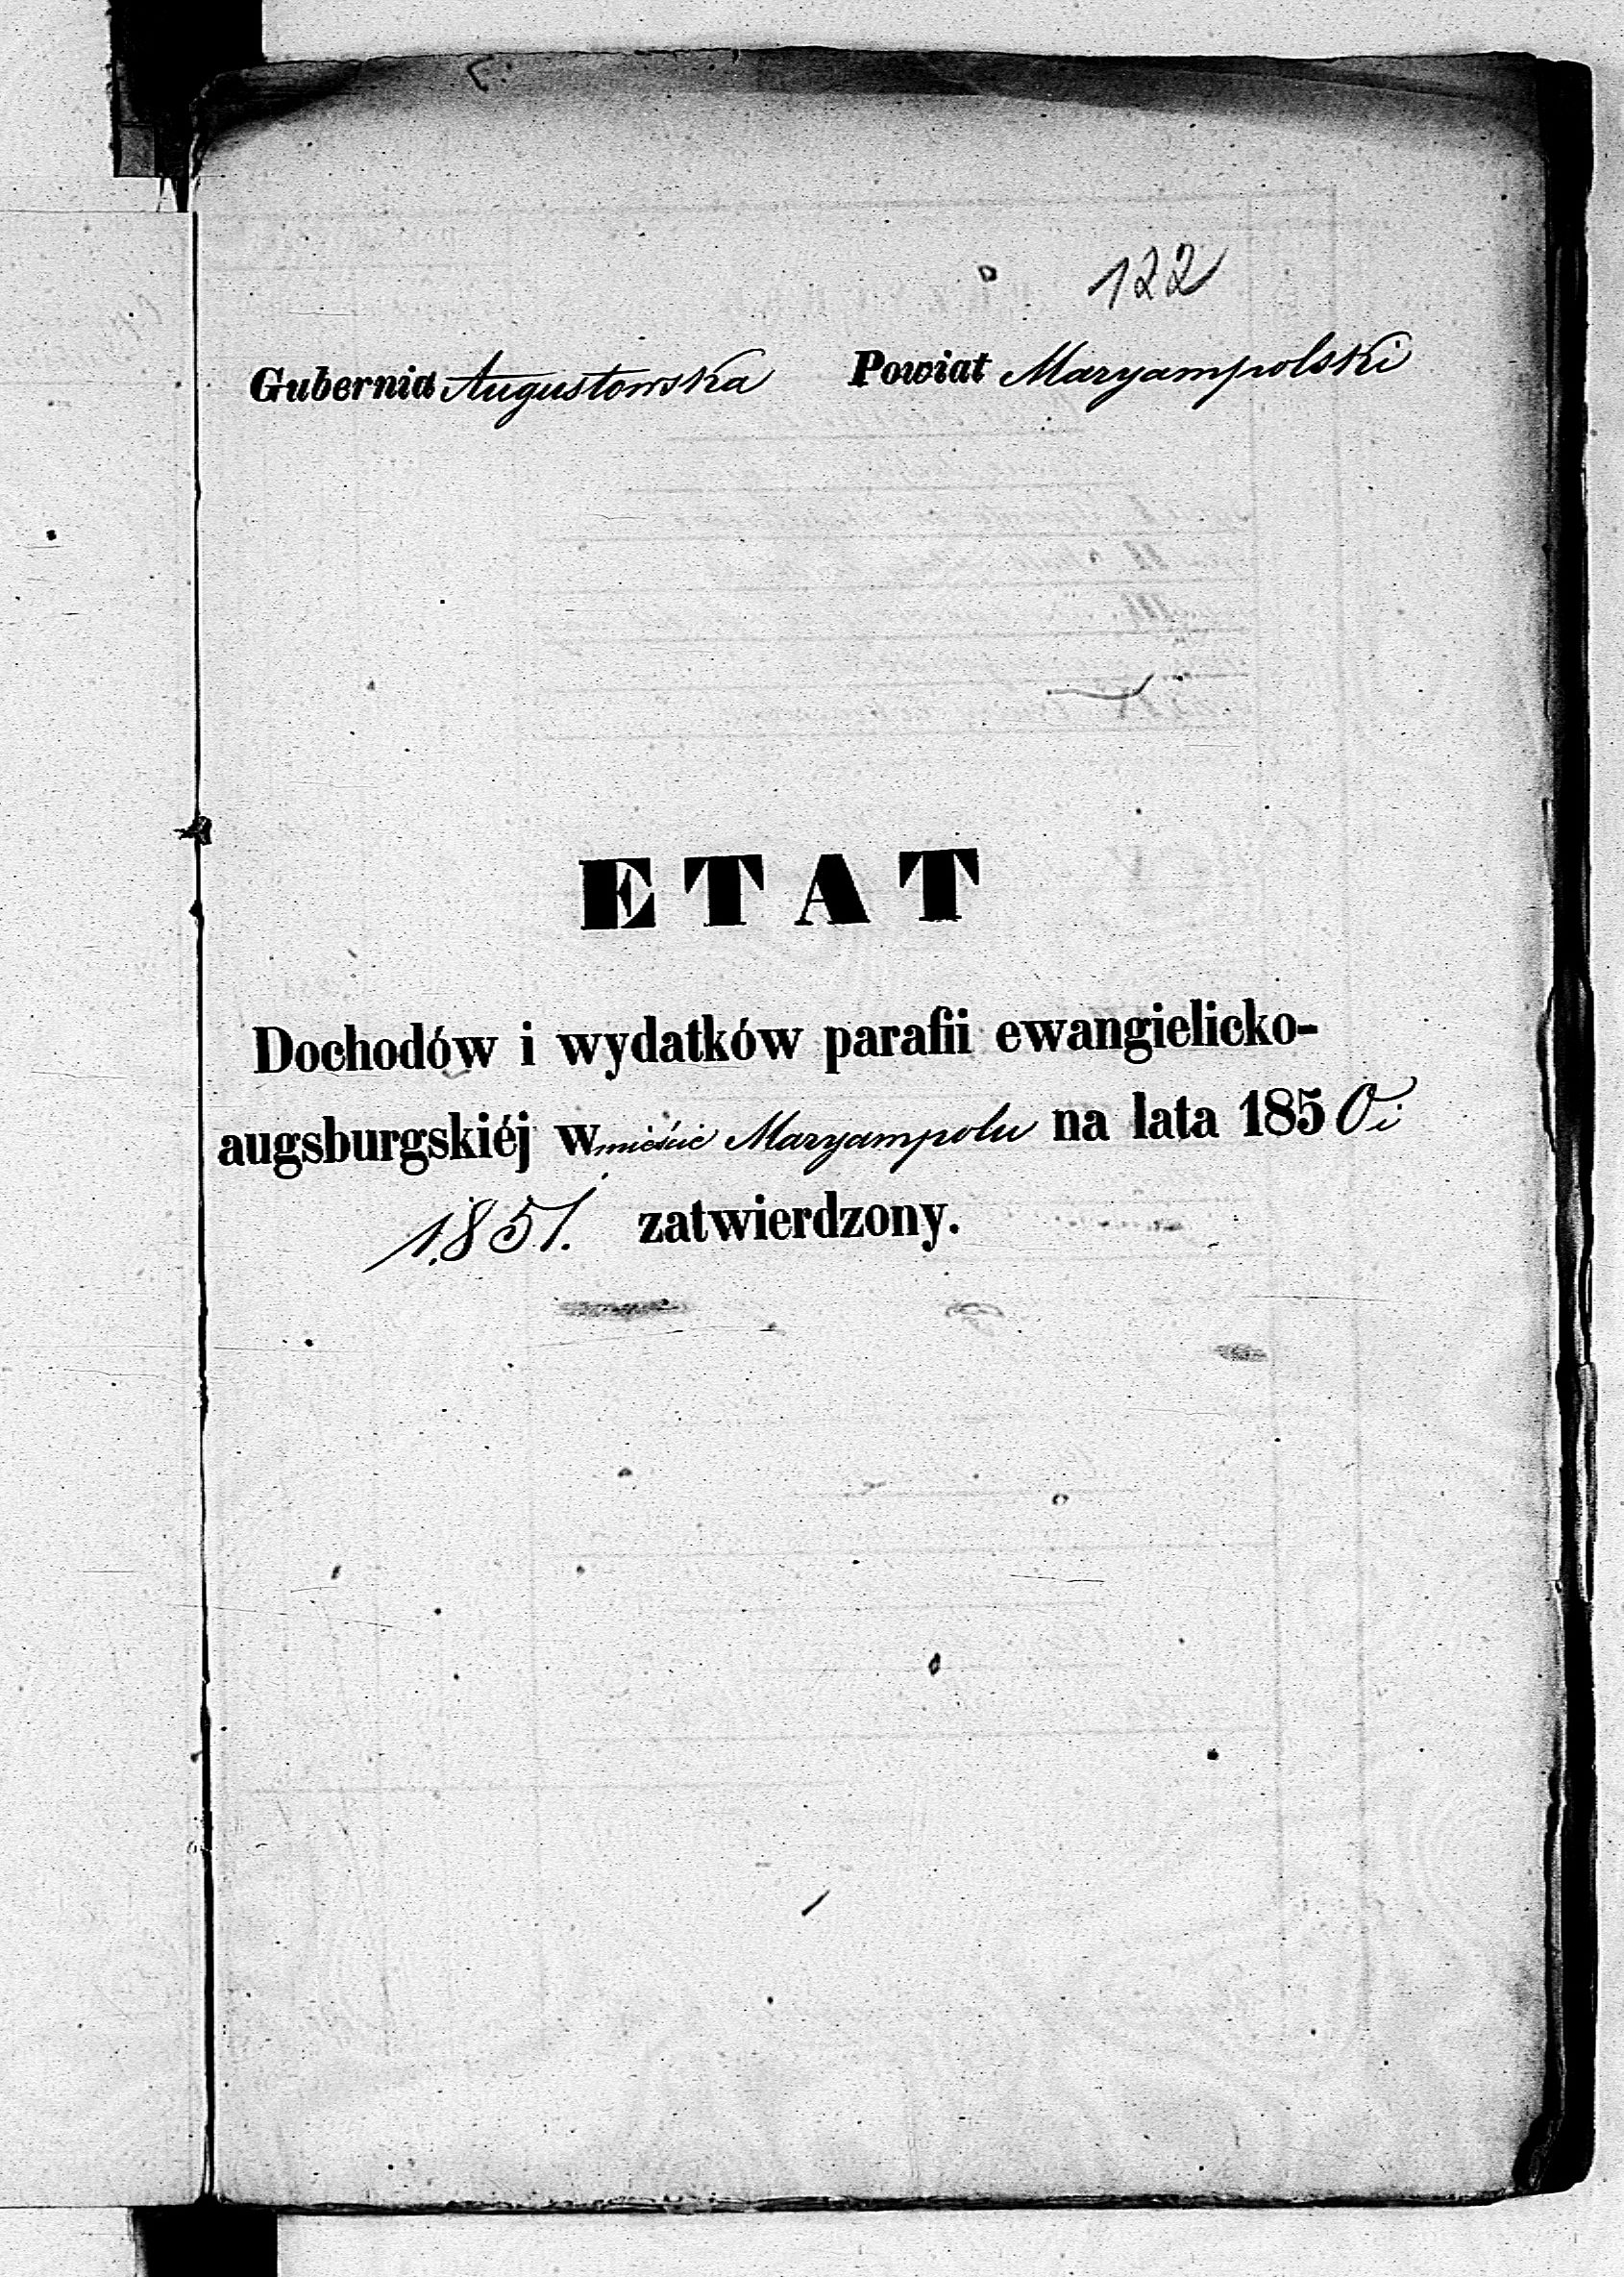 122
Gubernia Augustowska Powiat Maryampolski
ETAT
Dochodów i wydatków parafii ewangielicko-
augsburgskiéj w mieście Maryampolu na lata 1850 i
1851. zatwierdzony.